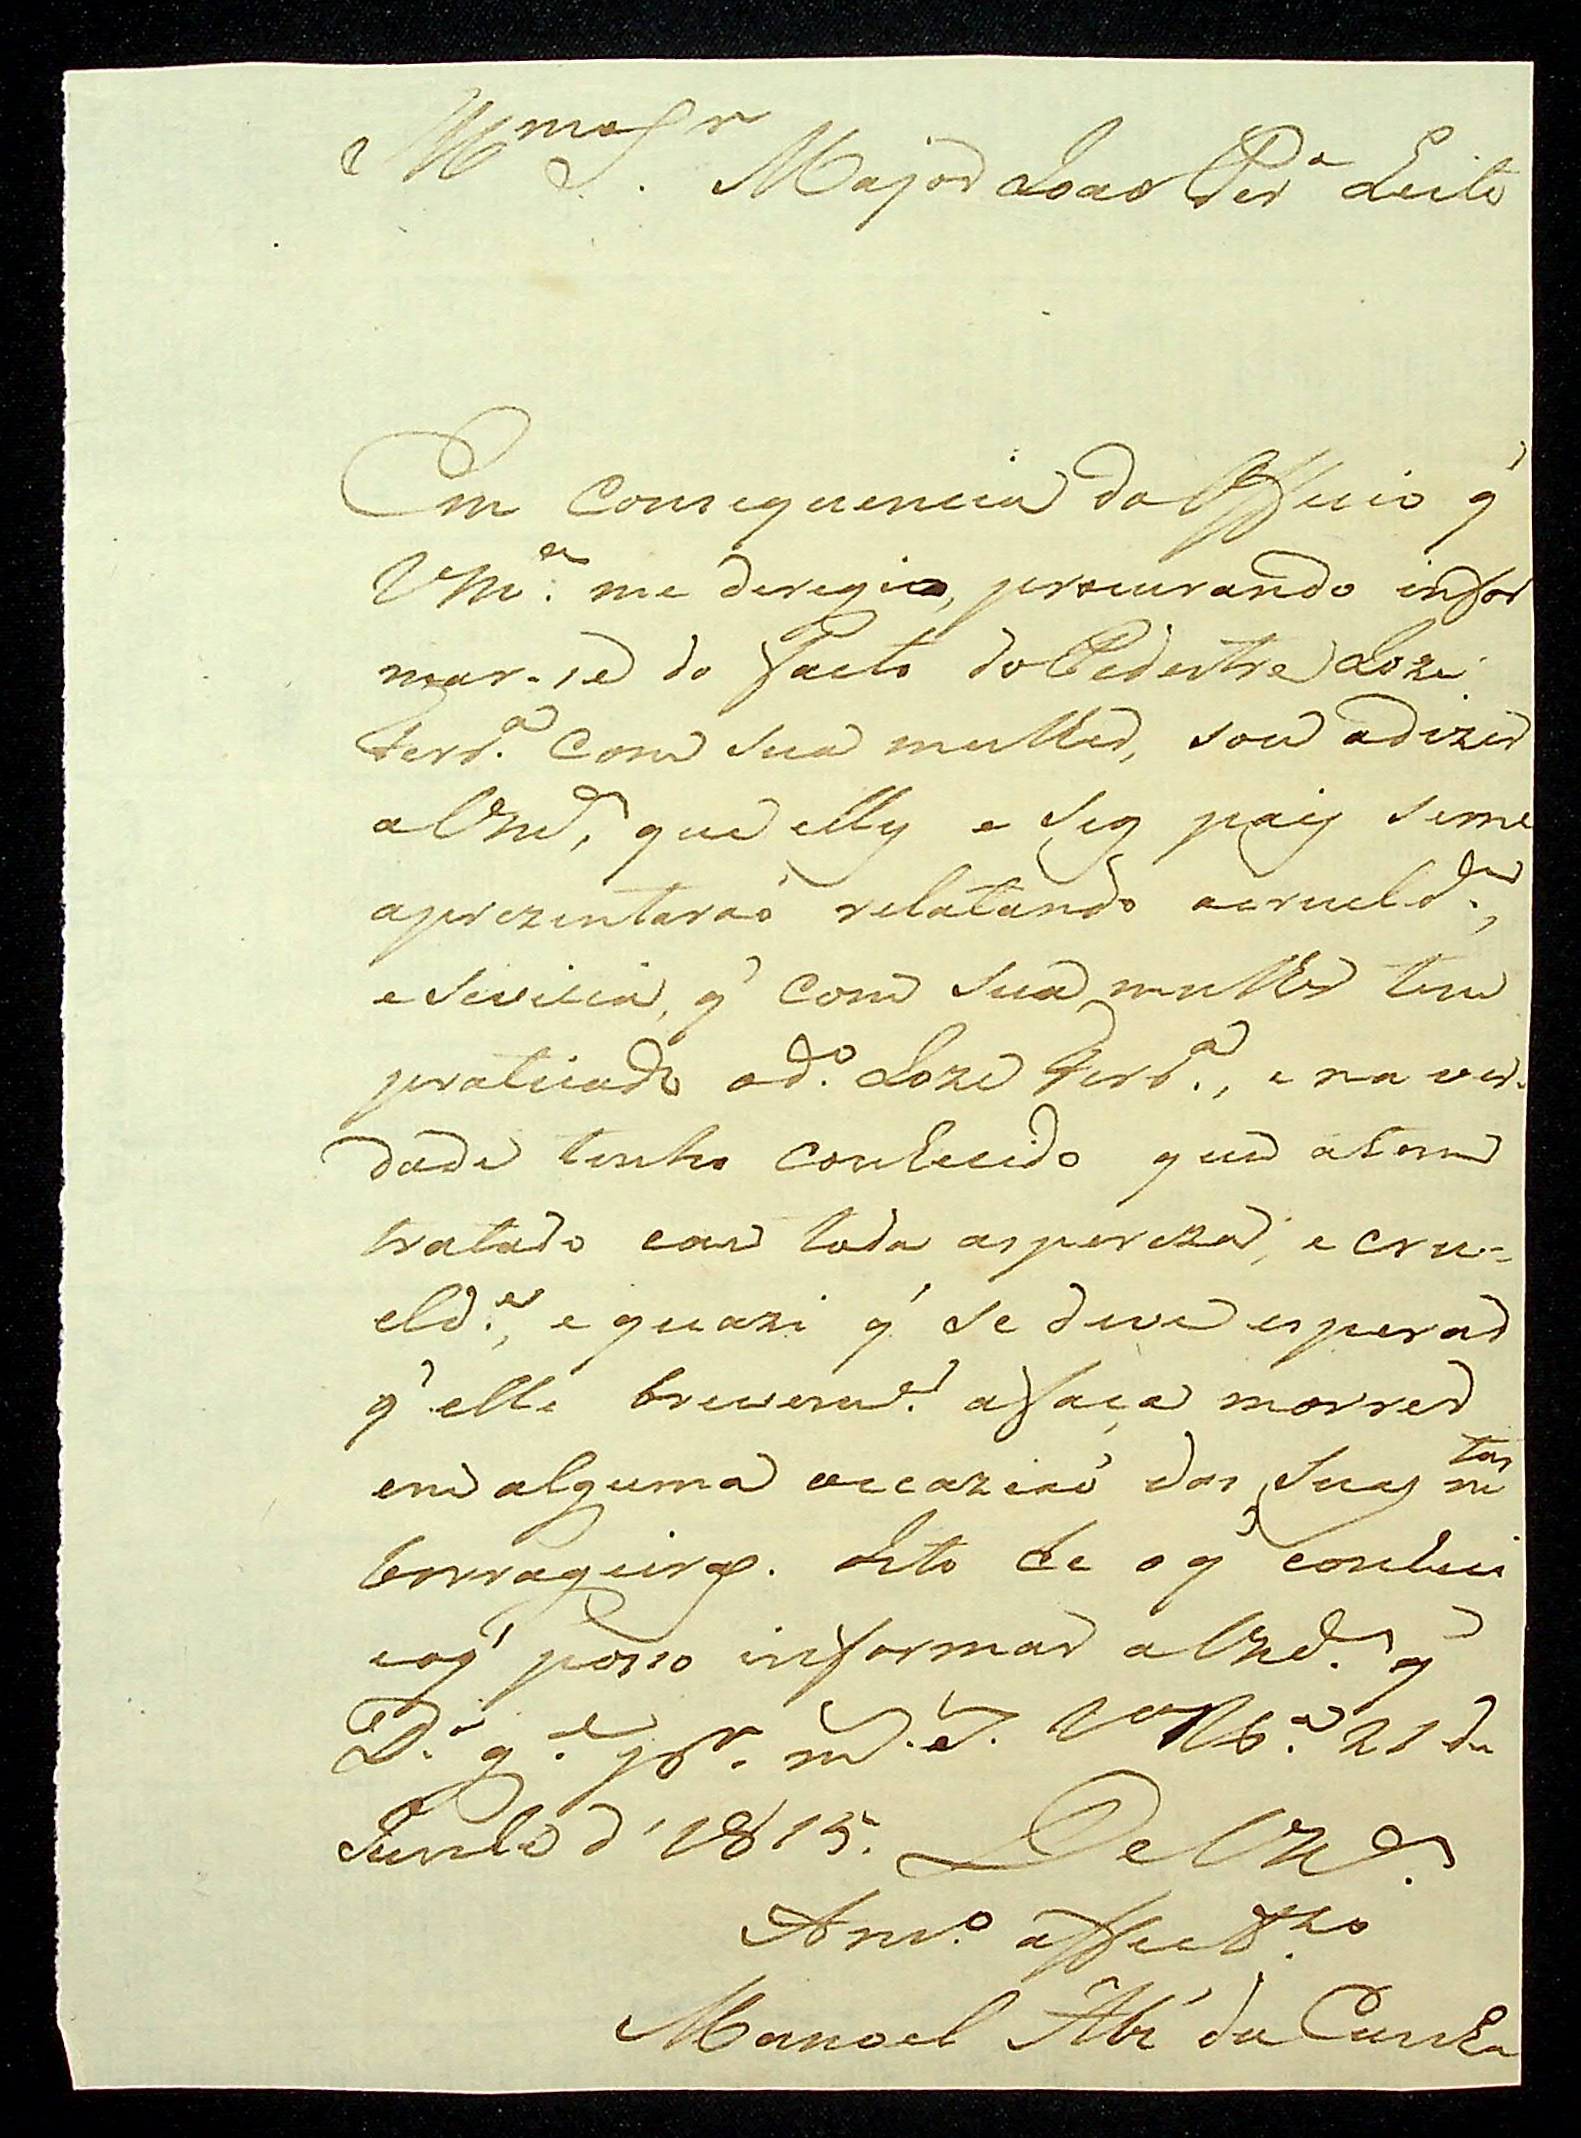 Illmo Sr. Major Joao Per.a Leite
Em consequencia do Officio q'
VM.ce me deregio, procurando infor
mar-se do facto do Pedestre Joze
Ferr.a com sua mulher, sou a dizer
a Vm.ce, que elles e seus pais se me
aprezentaraõ relatando a crueld.e,
e sevicia, q' com sua mulher tem
praticado o d.o Joze Ferr.a, e na ver-
dade tenho conhecido que a tem
tratado com toda aspereza, e cru-
eld.e, e quazi q' se deve esperar
q' elle brevem.te a faça morrer
em alguma occaziaõ das suas m.tas
borraqueiras. Isto he o q' conheci
e o q' posso informar a Vm.ce q'
D.s g.e por m. a. V.a M.a 21 de
Junho d' 1815. De Vm.ce
Am.o affect.mo
Manoel da Cunha